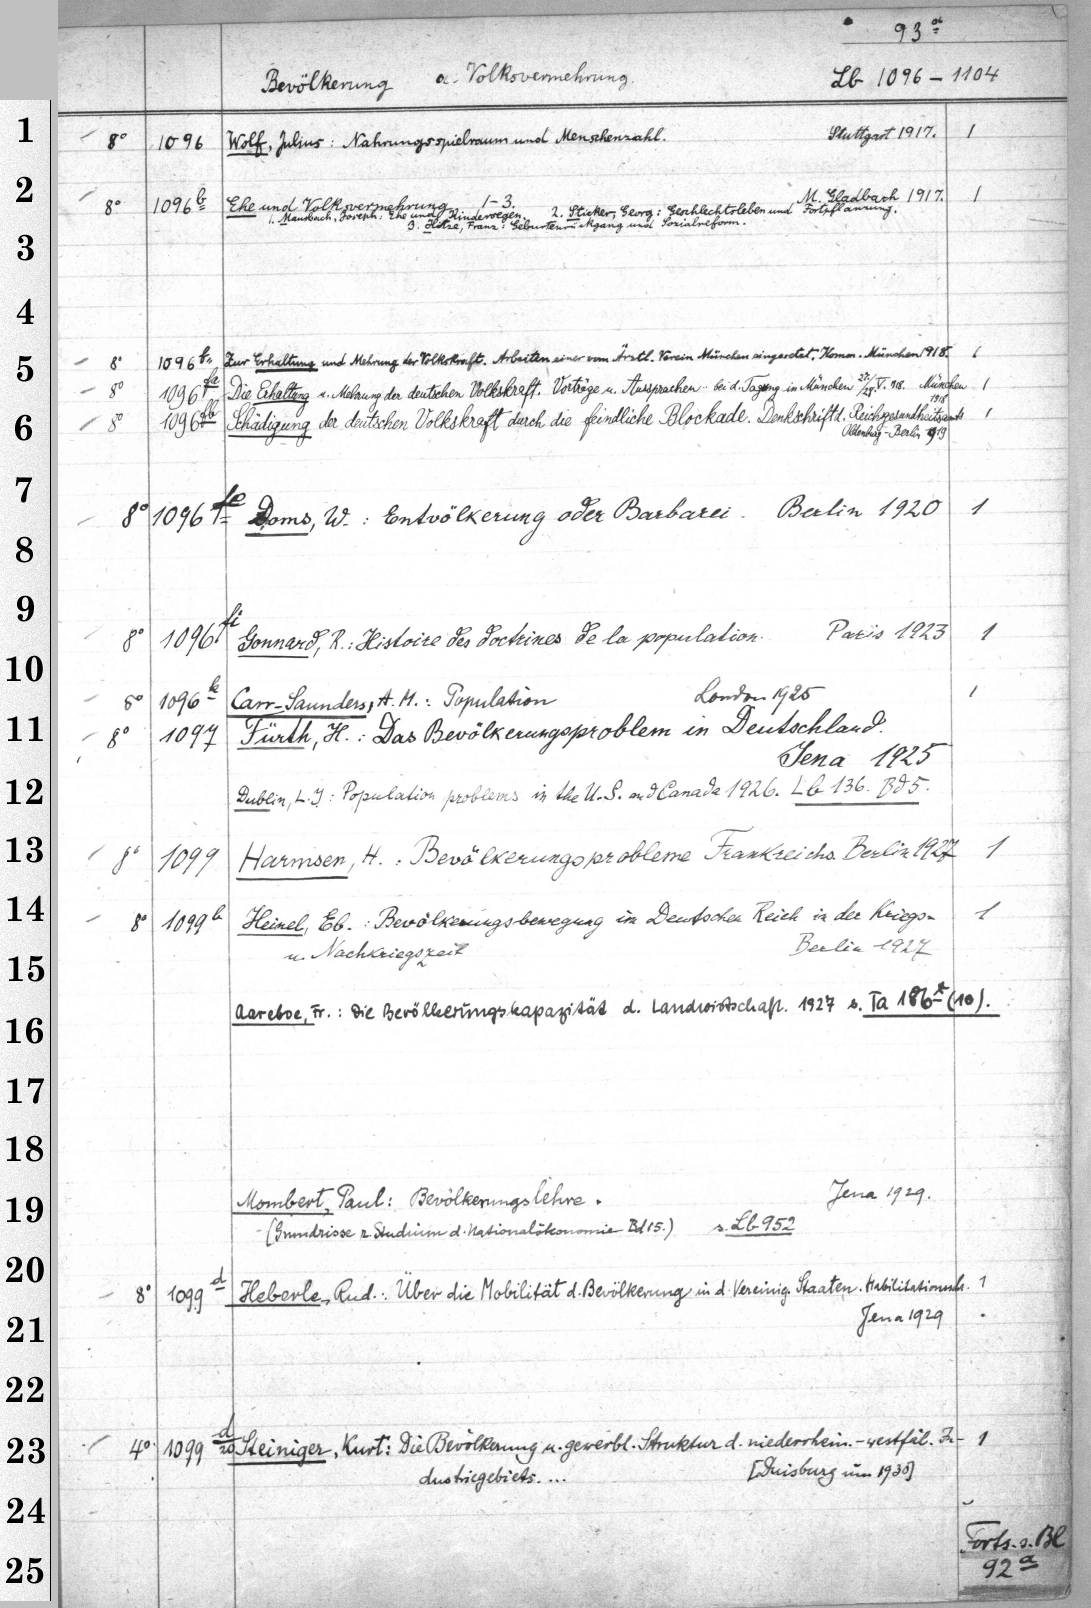 93 a
Bevölkerung a. Volksvermehrung. Lb 1096 - 1104
1
8° 1096 Wolf, Julius: Nahrungsspielraum und Menschenzahl. Stuttgart 1917. 1
2
8° 1096 b Ehe und Volksvermehrung 1-3. M. Gladbach 1917. 1
1. Mausbach, Joseph: Ehe und Kindersegen. 2. Sticker, Georg: Geschlechtsleben und Fortpflanzung.
3. Hitze, Franz: Geburtenrückgang und Sozialreform.
3
4
5
8° 1096 f Zur Erhaltung und Mehrung der Volkskraft. Arbeiten einer vom Ärztl. Verein München eingesetzt. Komm. München 1918. 1
8° 1096 fa Die Erhaltung u. Mehrung der deutschen Volkskraft. Vorträge u. Aussprachen bei d. Tagung in München 27/28. V. 918. München 1
1918
6
8° 1096 fb Schädigung der deutschen Volkskraft durch die feindliche Blockade. Denkschrift d. Reichsgesundheitsamts 1
Oldenburg-Berlin 1919
7
8° 1096 fe Doms, W.: Entvölkerung oder Barbarei. Berlin 1920 1
8
9
8° 1096 fi Gonnard, R.: Histoire des doctrines de la population. Paris 1923 1
10
8° 1096 k Carr-Saunders, A. M.: Population London 1925 1
11
8° 1097 Fürth, H.: Das Bevölkerungsproblem in Deutschland.
Jena 1925
12
Dublin, L. I: Population problems in the U.S. and Canada 1926. Lb 136. Bd 5.
13
8° 1099 Harmsen, H.: Bevölkerungsprobleme Frankreichs. Berlin 1927 1
14
8° 1099 b Heinel, Eb.: Bevölkerungsbewegung im Deutschen Reich in der Kriegs- 1
u. Nachkriegszeit Berlin 1927
15
Aereboe, Fr.: Die Bevölkerungskapazität d. Landwirtschaft. 1927 s. Ia 186 (10).
16
17
18
19
Mombert, Paul: Bevölkerungslehre. Jena 1929.
(Grundrisse z. Studium d. Nationalökonomie Bd 15.) s. Lb 952
20
8° 1099 d Heberle, Rud.: Über die Mobilität d. Bevölkerung in d. Vereinig. Staaten. Habilitationsschr. 1
21
Jena 1929
22
23
4° 1099 d/20 Steiniger, Kurt: Die Bevölkerung u. gewerbl. Struktur d. niederrhein.-westfäl. In- 1
dustriegebiets. ... [Duisburg um 1930]
24
Forts. s. Bl
25
92 a